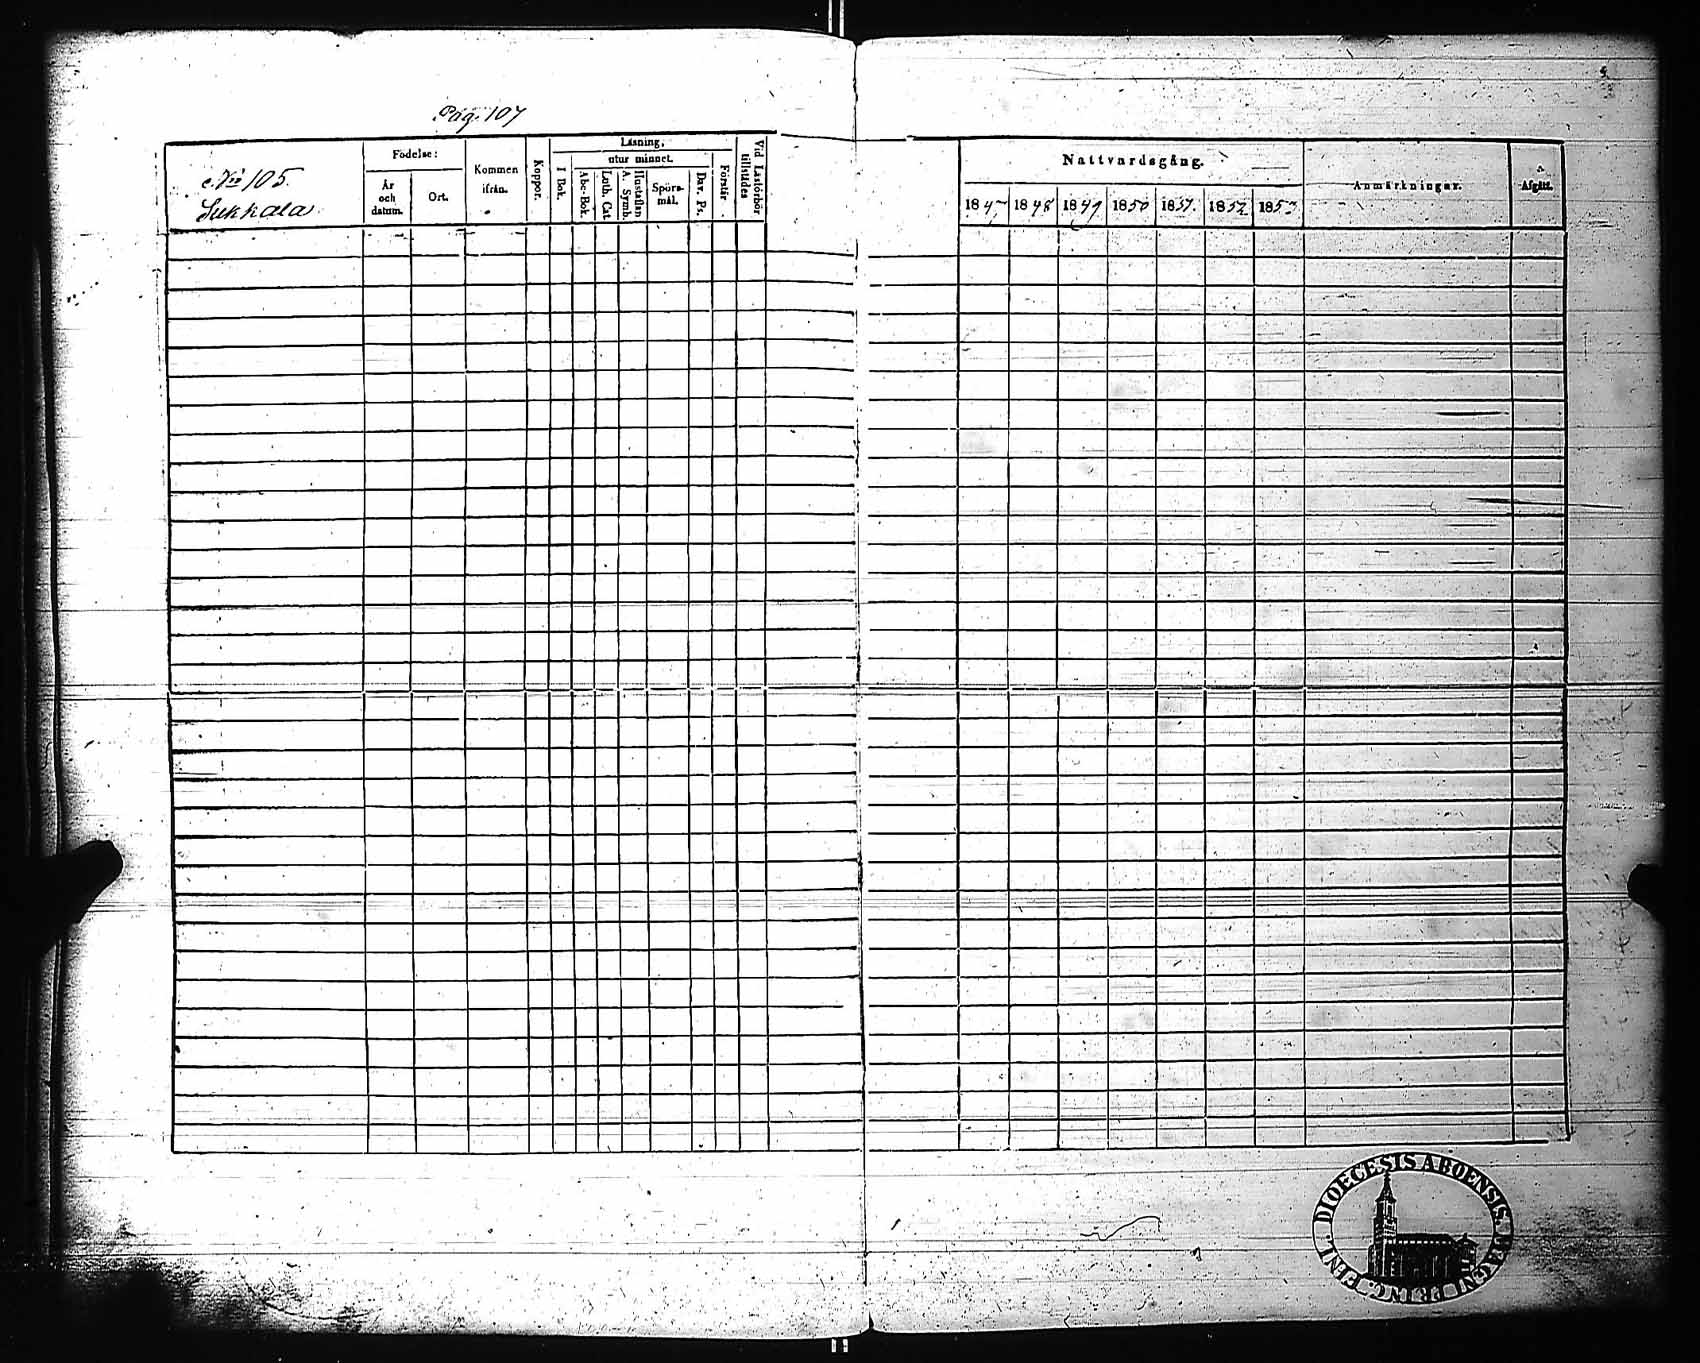 Pag. 107
No 105.
Sukkala.
Födelse:
År
och
datum.
Ort.
Kommen
ifrån.
Koppor.
Läsning,
utur minnet.
I Bok.
Abc-Bok.
Luth. Cat.
Hustaflan
A. Symb.
Spörs-
mål.
Dav. Ps.
Förstår
Vid Läsförhör
tillstädes
Nattvardsgång.
1847 1848 1849 1850 1851. 1852 1853
Anmärkningar.
Afgått.
DIOECESIS ABOENSIS.
PRINC. FINL.